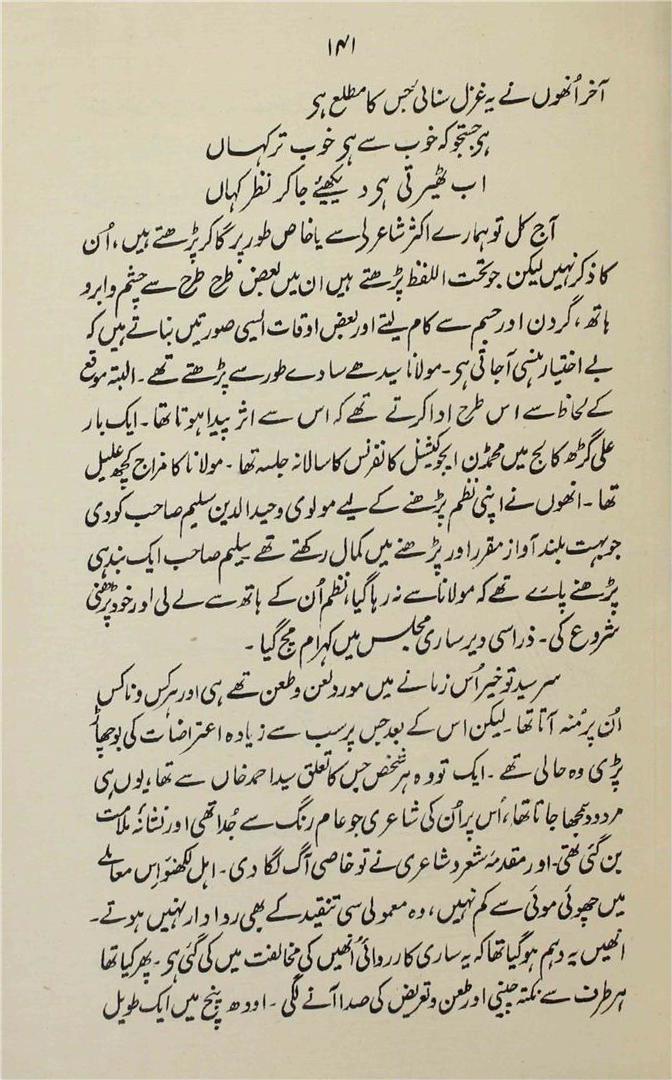 ۱۴۱
آخر اُنھوں نے یہ غزل سنائی جس کا مطلع ہی
ہی جستجو کہ خوب سے ہی خوب تر کہاں
اب ٹھیرتی ہی دیکھیئے جا کر نظر کہاں
آج کل تو ہمارے اکثر شاعر لَے سے یا خاص طور پر گا کر پڑھتے ہیں، اُن
کا ذکر نہیں لیکن جو تحت اللفظ پڑھتے ہیں ان میں بعض طرح طرح سے چشم و ابرو
ہاتھ، گردن اور جسم سے کام لیتے اور بعض اوقات ایسی صورتیں بناتے ہیں کہ
بے اختیار ہنسی آ جاتی ہی۔ مولانا سیدھے سادے طور سے پڑھتے تھے۔ البتہ موقع
کے لحاظ سے اس طرح ادا کرتے تھے کہ اس سے اثر پیدا ہوتا تھا۔ ایک بار
علی گڑھ کالج میں محمڈن ایجوکیشنل کانفرنس کا سالانہ جلسہ تھا۔ مولانا کا مزاج کچھ علیل
تھا۔ انھوں نے اپنی نظم پڑھنے کے لیے مولوی وحید الدین سلیم صاحب کو دی
جو بہت بلند آواز مقرر اور پڑھنے میں کمال رکھتے تھے۔ سلیم صاحب ایک بند ہی
پڑھنے پائے تھے کہ مولانا سے نہ رہا گیا، نظم اُن کے ہاتھ سے لے لی اور خود پڑھنی
شروع کی۔ ذرا سی دیر ساری مجلس میں کہرام مچ گیا۔
سر سید تو خیر اُس زمانے میں مورد لعن و طعن تھے ہی اور ہر کس و ناکس
اُن پر مُنہ آتا تھا۔ لیکن اس کے بعد جس پر سب سے زیادہ اعتراضات کی بوچھاڑ
پڑی وہ حالی تھے۔ ایک تو وہ ہر شخص جس کا تعلق سید احمد خاں سے تھا، یوں ہی
مردود سمجھا جاتا تھا، اُس پر اُن کی شاعری جو عام رنگ سے جُدا تھی اور نشانۂ ملامت
بن گئی تھی۔ اور مقدمۂ شعر و شاعری نے تو خاصی آگ لگا دی۔ اہل لکھنؤ اِس معاملے
میں چھوئی موئی سے کم نہیں، وہ معمولی سی تنقید کے بھی روادار نہیں ہوتے۔
انھیں یہ وہم ہو گیا تھا کہ یہ ساری کارروائی اُنھیں کی مخالفت میں کی گئی ہی۔ پھر کیا تھا
ہر طرف سے نکتہ چینی اور طعن و تعریض کی صدا آنے لگی۔ اودھ پنچ میں ایک طویل